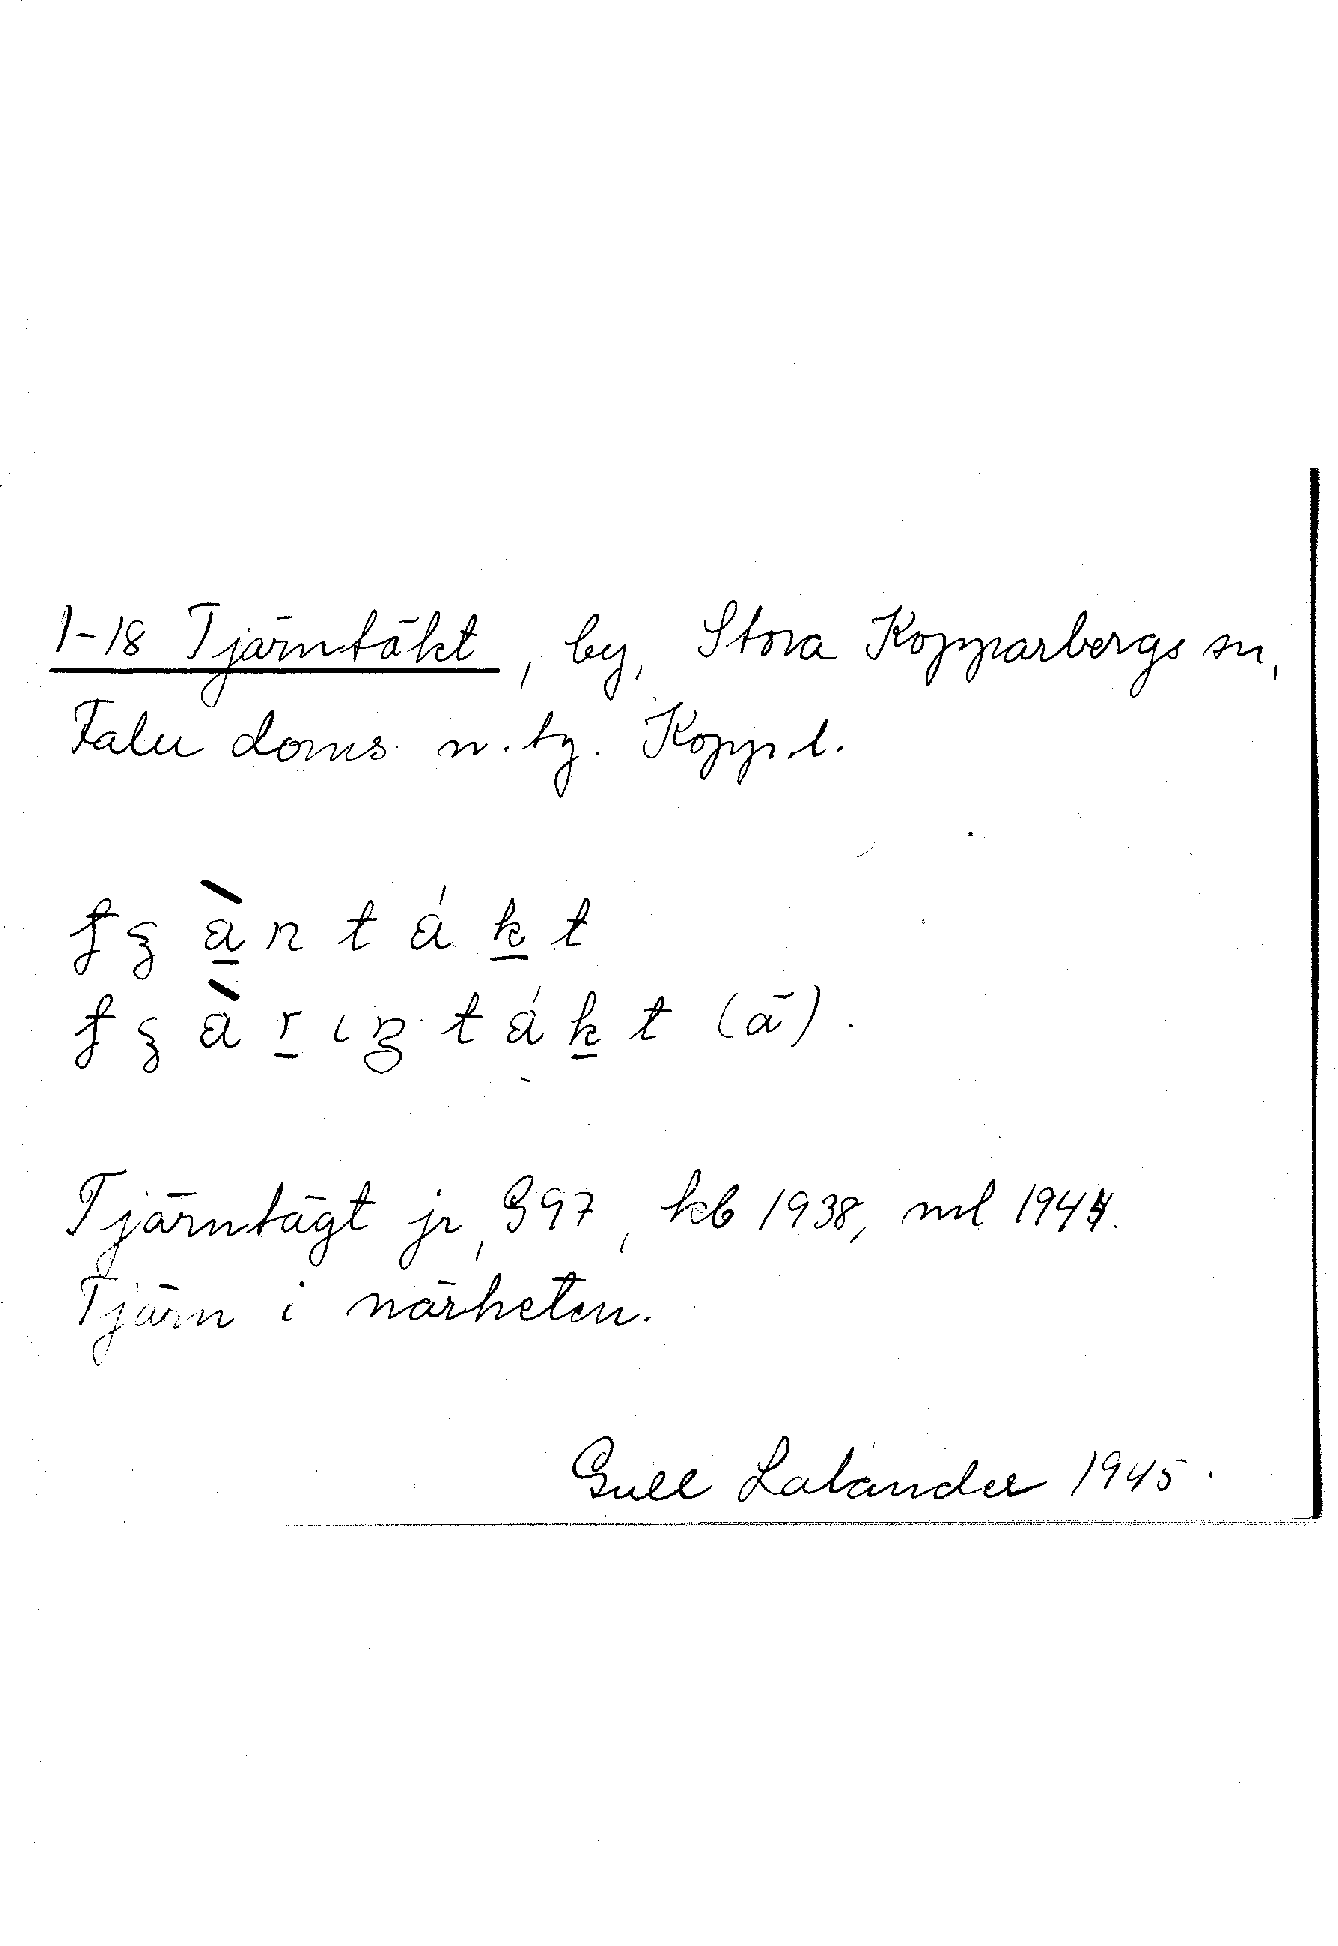 1-18 Tjärntäkt, by, Stora Kopparbergs sn,
Falu doms. n. tg. Kopp. l.
Tjärntägt jr, G97, kb 1938, ml 1944.
Tjärn i närheten.
Gull Lalander 1945.